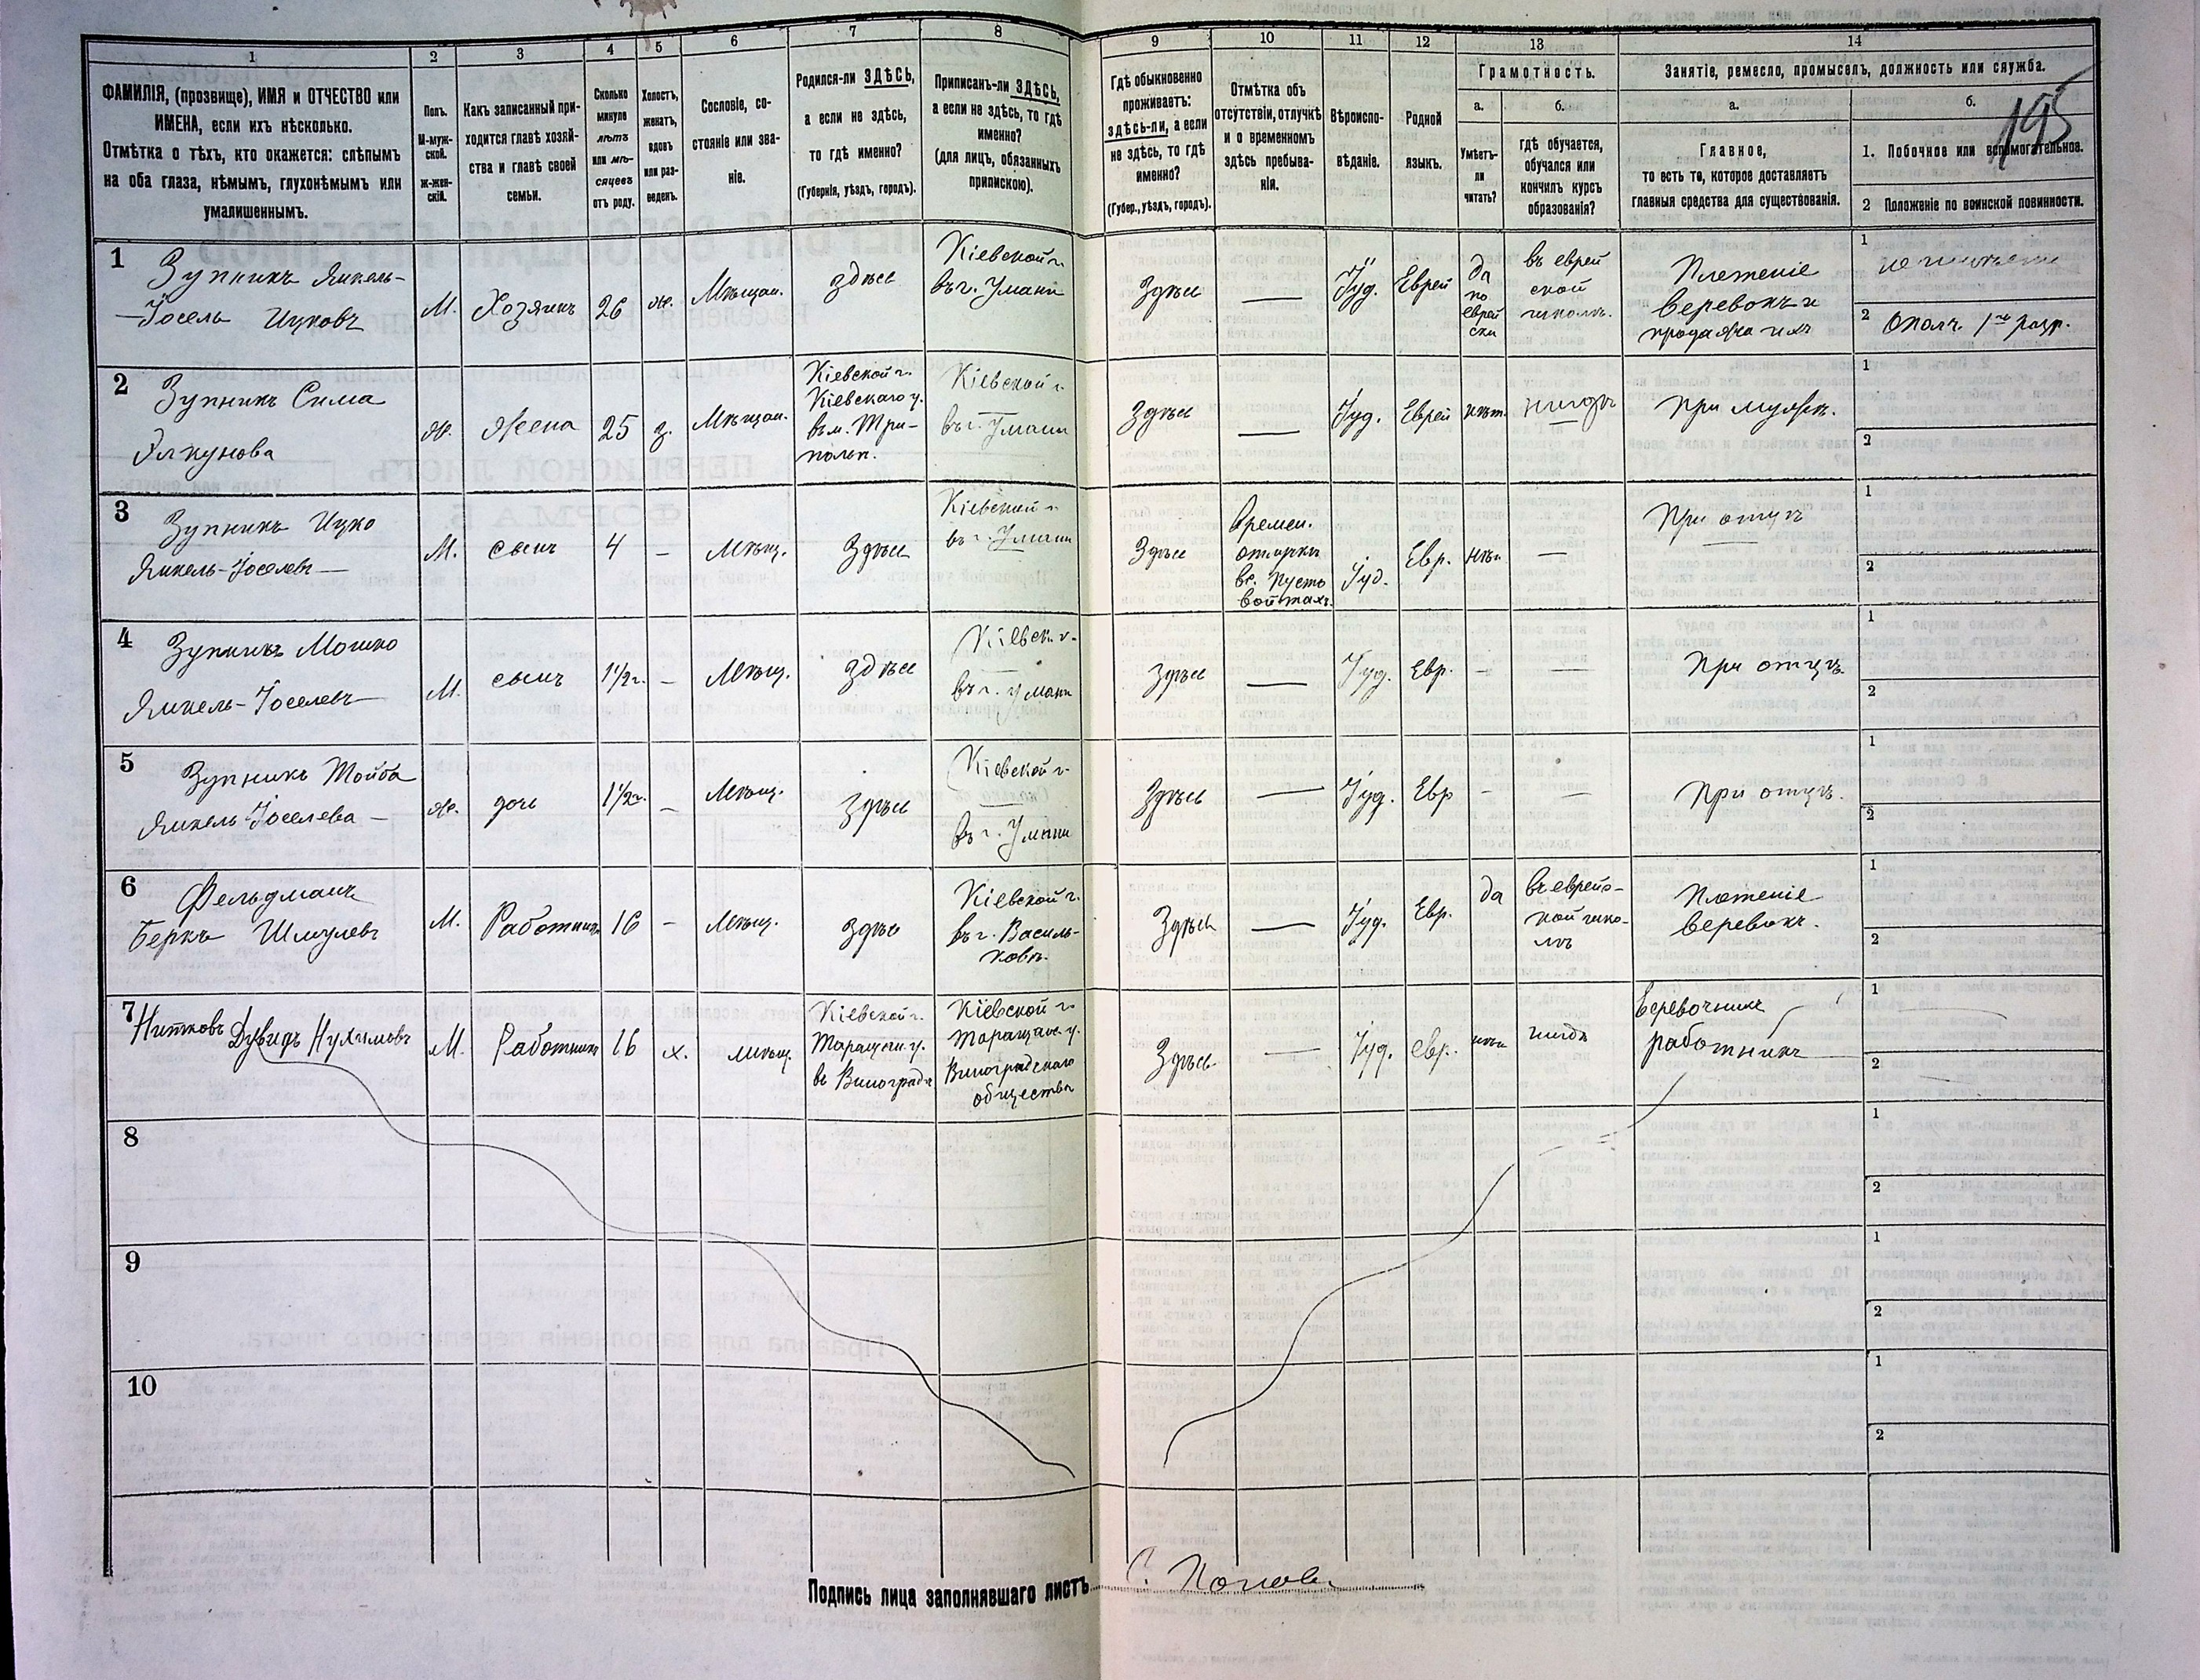 1
2
3
4
5
6
7
8
9
10
11
12
13
14
ФАМИЛІЯ, (прозвище), ИМЯ и ОТЧЕСТВО или
ИМЕНА, если ихъ нѣсколько.
Отмѣтка о тѣхъ, кто окажется: слѣпымъ
на оба глаза, нѣмымъ, глухонѣмымъ или
умалишеннымъ.
Полъ.
М-муж-
ской.
Ж-жен-
скій.
Какъ записанный при-
ходится главѣ хозяй-
ства и главѣ своей
семьи.
Сколько
минуло
лѣтъ
или мѣ-
сяцевъ
отъ роду.
Холостъ,
женатъ,
вдовъ
или раз-
веденъ.
Сословіе, со-
стояніе или зва-
ніе.
Родился-ли ЗДѢСЬ,
а если не здѣсь,
то гдѣ именно?
(Губернія, уѣздъ, городъ).
Приписанъ-ли ЗДѢСЬ,
а если не здѣсь, то гдѣ
именно?
(для лицъ, обязанныхъ
припискою).
Гдѣ обыкновенно
проживаетъ:
здѣсь-ли, а если
не здѣсь, то гдѣ
именно?
(Губер., уѣздъ, городъ).
Отмѣтка объ
отсутствіи, отлучкѣ
и о временномъ
здѣсь пребыва-
ніи.
Вѣроиспо-
вѣданіе.
Родной
языкъ.
Грамотность.
а.
б.
Умѣетъ-
ли
читать?
гдѣ обучается,
обучался или
кончилъ курсъ
образованія?
Занятіе, ремесло, промыселъ, должность или служба.
а.
б.
195
Главное,
то есть то, которое доставляетъ
главныя средства для существованія.
1. Побочное или вспомогательное.
2 Положеніе по воинской повинности.
1
Зупникъ Янкель-
Іосель Ицковъ
М.
Хозяинъ
26
ж.
Мѣщан.
здѣсь
Кіевской г.
въ г. Умани
Здѣсь
—
Іуд.
Еврей
да
по
еврей
ски
въ еврей
ской
школѣ.
Плетеніе
веревокъ и
продажа ихъ
1
2 Ополч. 1го разр.
2
Зупникъ Сима
ж.
Жена
25
з.
Мѣщан.
Кіевской г.
Кіевскаго у.
въ м. Три-
польи.
Кіевской г.
въ г. Умани
Здѣсь
—
Іуд.
Еврей
нѣт.
нигдѣ
При мужѣ.
1
2
3
Зупникъ Ицко
Янкель-Іоселевъ —
М.
сынъ
4
–
Мѣщ.
Здѣсь
Кіевской г.
въ г. Умани
Здѣсь
Времен.
отлучкѣ
въ Пусто
войтахъ.
Іуд.
Евр.
нѣт
—
При отцѣ
1
2
4
Зупникъ Мошко
Янкель-Іоселевъ
М.
сынъ
1 1/2 г.
–
Мѣщ.
здѣсь
Кіевск. г.
въ г. Умани
Здѣсь
—
Іуд.
Евр.
–
—
При отцѣ.
1
2
5
Зупникъ Тойба
Янкель Іоселева —
ж.
дочь
1 1/2 г.
–
Мѣщ.
Здѣсь
Кіевской г.
въ г. Умани
Здѣсь
—
Іуд.
Евр
–
—
При отцѣ.
1
2
6
Фельдманъ
Беркъ Шмулевъ
М.
Работникъ
16
–
Мѣщ.
здѣсь
Кіевской г.
въ г. Василь-
ковѣ.
Здѣсь
—
Іуд.
Евр.
да
въ еврейс-
кой шко-
лѣ
Плетеніе
веревокъ.
1
2
7
Нитковъ Дувидъ Нухимовъ
М.
Работникъ
16
х.
мѣщ.
Кіевской г.
Таращан. у.
въ Виноградѣ
Кіевской г.
Таращанс. у.
Виноградскаго
общества
Здѣсь.
—
Іуд.
евр.
нѣт
нигдѣ
Веревочникъ
работникъ
1
2
8
1
2
9
1
2
10
1
2
Подпись лица заполнявшаго листъ